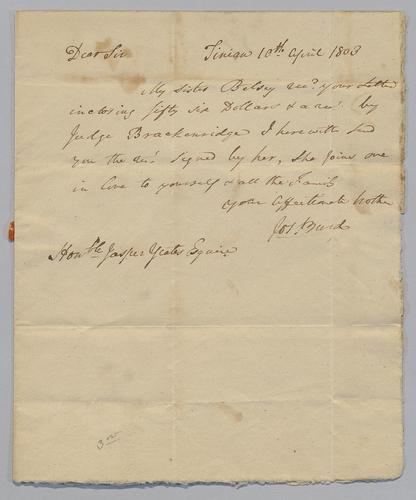 Dear Sir Tinian 10th April 1803
My Sister Betsey recd. your Letter
inclosing fifty six Dollars & a rect. by
Judge Brackenridge I herewith Send
you the rect. Signed by her, She Joins me
in love to yourself & all the Family
your affectionate brother
Jos. Burd
Honble. Jasper Yeates Esquire